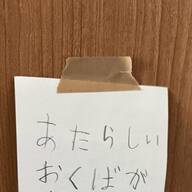 あたらしい
おくばが